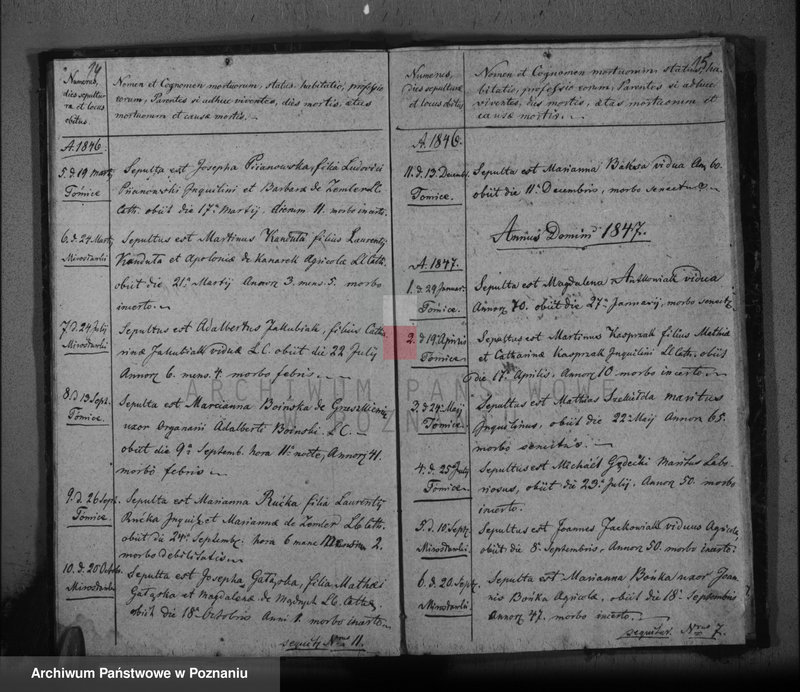 14
Numerus, dies sepulturae et locus obitus.
Nomen et Cognomen mortuorum, status, habitatio, professio
eorum, Parentes si adhuc viventes, dies mortis, aetas
mortuorum et causa mortis.
A. 1846
5. d 19 Martij
Tomice.
Sepulta est Josepha filia Ludovici
Inquilini et Barbara de
Cath. obiit die 17a Martij, dierum 11. morbo incerto.
6. d. 24 Martij
Mirosławki
Sepultus est Martinus Kanduła filius Laurentij
Kanduła et Apolonia de Kanarek Agricola Ll. Cath.
obiit die 21a Martij Annor. 3. mens. 5. morbo
incerto.
7. d. 24 Julij
Mirosławki
Sepultus est Adalbertus Jakubiak, filius Catha
rinae Jakubiak viduae L.C. obiit die 22 Julij
Annor. 6. mens. 4. morbo febris.
8. d 13 Sept.
Tomice.
Sepulta est Marcianna Boińska de
uxor Organarii Adalberti Boinski L.C.
obiit die 9a Septemb. hora 11a nocte, Annor. 41.
morbo febris
9. d. 26 Sept.
Tomice
Sepulta est Marianna Rućka filia Laurentij
Rućka Inquil. et Marianna de Zemler Ll. Cath.
obiit die 24a Septembr. hora 6 mane 2.
morbo debilitatis
10. d. 20 Octobr.
Mirosławki
Sepulta est Josepha Gałązka, filia Mathaei
Gałązka et Magdalenae de Ll. Cath.
obiit die 18a Octobris Anni 1. morbo incerto
sequitr Nrus 11.
15
Numerus, dies sepulturae et locus obitus
Nomen et Cognomen mortuorum, status, ha-
bitatio, professio eorum, Parentes si adhuc
viventes, dies mortis, aetas mortuorum et
causa mortis.
A. 1846.
11. d. 13. Decemb.
Tomice.
Sepulta est Marianna Bakosa vidua An. 60.
obiit die 11a Decembris, morbo senectus.
Annus Domini 1847.
A. 1847.
1. d. 29 Januar.
Tomice.
Sepulta est Magdalena Antkowiak vidua
Annor. 70. obiit die 27a Januarij, morbo senect.
2. d 19 Aprilis
Tomice
Sepultus est Martinus Kasprzak filius Mathiae
et Catharinae Kasprzak Inquilini Ll. Cath. obiit
die 17a Aprilis. Annor. 10. morbo incerto.
3. d 24 Maij
Tomice.
Sepultus est Mathias Szekiełda maritus
Inquilinus, obiit die 22a Maij Annor. 65.
morbo senectus.
4. d. 25 Julij
Tomice.
Sepultus est Michael Gądecki Maritus Labo-
riosus, obiit die 23a Julij. Annor. 50. morbo
incerto.
5. d. 10. Sept.
Mirosławki
Sepultus est Joannes Jackowiak viduus Agricola
obiit die 8a Septembris, Annor. 50. morbo incerto.
6. d. 20 Sept.
Mirosławki
Sepulta est Marianna Bońka uxor Joan-
nis Bońka Agricola. obiit die 18a Septembris
Annor. 47. morbo incerto.
sequitur Nrus 7.
ARCHIWUM PAŃSTWOWE
POZNAŃ
Archiwum Państwowe w Poznaniu
szukajwarchiwach.pl